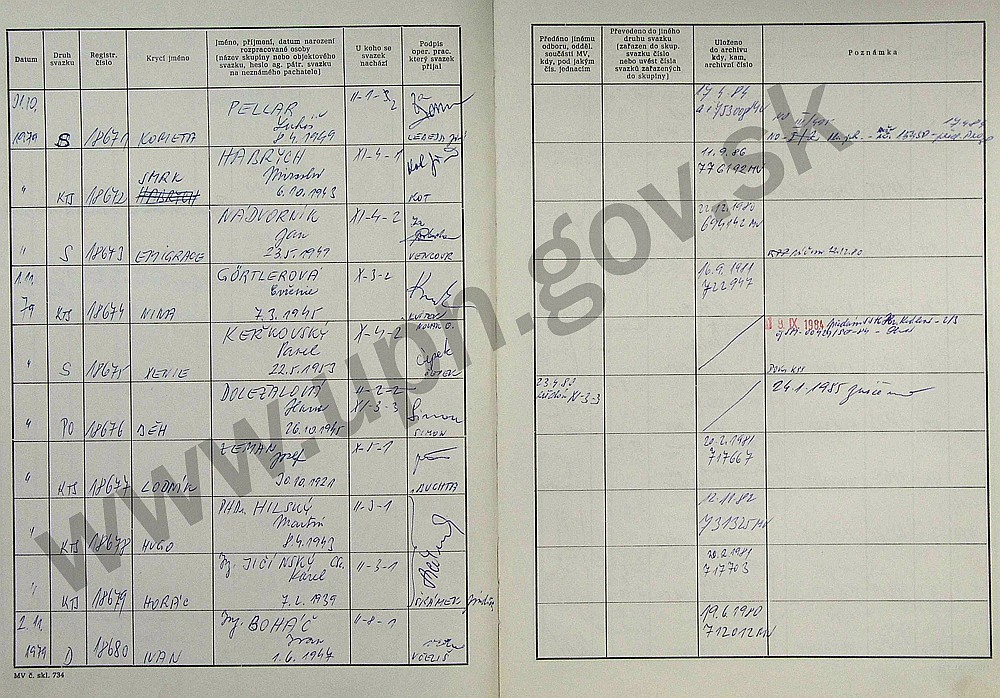 Datum
Druh svazku
Registr. číslo
Krycí jméno
Jméno, příjmení, datum narození
rozpracované osoby
(název skupiny nebo objektového
svazku, heslo ag. pátr. svazku
na neznámého pachatele)
U koho se
svazek
nachází
Podpis
oper. prac.
který svazek
přijal
Předáno jinému
odboru, odděl.
součásti MV,
kdy, pod jakým
čís. jednacím
Převedeno do jiného
druhu svazku
(zařazen do skup.
svazku číslo
nebo uvést čísla
svazků zařazených
do skupiny)
Uloženo
do archivu
kdy, kam,
archivní číslo
Poznámka
31.10.
1979 S 18671 KOMETA
PELLAR
8.4.1949
II-1-3
17.4.84
" KTS 18672 SMRK
HABRYCH
HABRYCH
Miroslav
6.10.1943
XI-4-1
KOT
11.9.86
776192 MV
" S 18673 EMIGRACE
NÁDVORNÍK
Jan
XI-4-2
za
VENCOUR
22.12.1980
694142 MV
1.11.
79 KTS 18674 NINA
GÖRTLEROVÁ
Evženie
7.3.1945
X-3-2
16.9.1981
722947
" S 18675 XENIE
KERKOVSKÝ
Pavel
22.5.1953
X-4-2
19. IX. 1984
" PO 18676 DĚH
DOLEŽALOVÁ
Hana
26.10.1945
II-2-2
XI-3-3
SIMON
XI-3-3
24.1.1985 zničeno
" KTS 18677 LODNÍK
ZEMAN
Josef
30.10.1921
X-5-1
DUCHTA
20.2.1981
717667
" KTS 18678 HUGO
PhDr. HILSKÝ
Martin
8.4.1943
II-3-1
12.11.82
731325 MV
" KTS 18679 HORÁC
Ing. JIČÍNSKÝ CSc.
Karel
7.2.1939
II-3-1
ŠRÁMEK
20.2.1981
717703
2.11.
1979 D 18680 IVAN
Ing. BOHÁČ
Ivan
1.6.1947
II-8-1
19.6.1980
712012 MV
MV č. skl. 734
www.upn.gov.sk